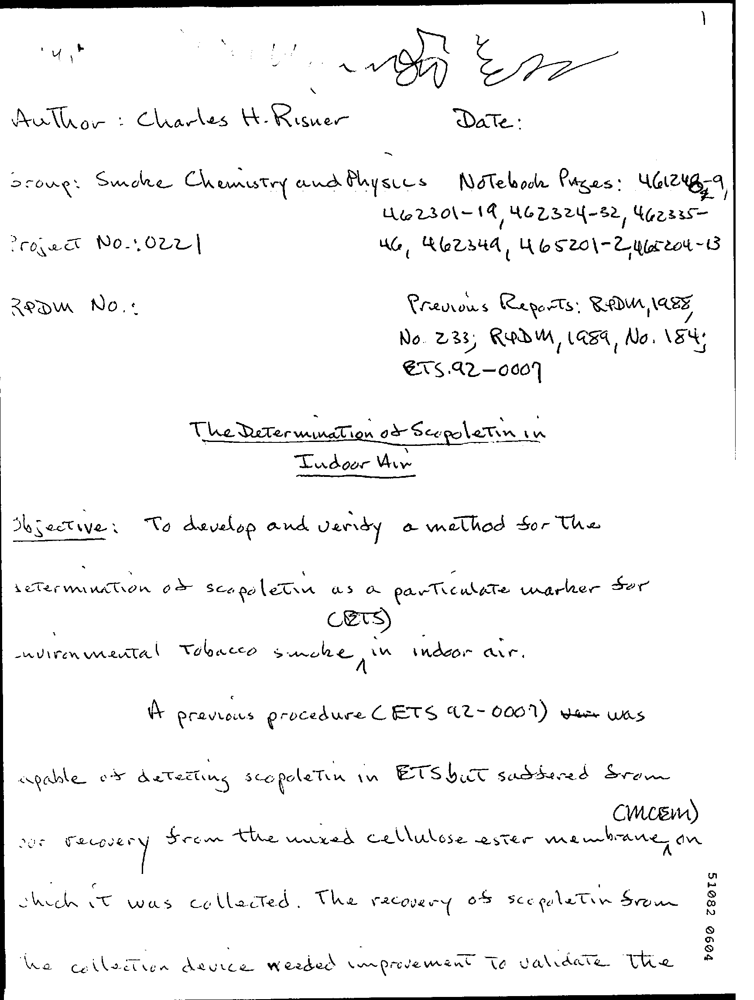 1
Author : Charles H. Risner Date:
Group: Smoke Chemistry and Physics Notebook Pages: 461248-9,
462301-19, 462324-32, 462335-
Project No.: 0221 46, 462349, 465201-2, 465204-13
R&DM No.: Previous Reports: R&DM, 1988,
No. 233; R&DM, 1989, No. 184;
ETS.92-0007
The Determination of Scopoletin in
Indoor Air
Objective: To develop and verify a method for the
determination of scopoletin as a particulate marker for
(ETS)
environmental Tobacco smoke, in indoor air.
A previous procedure (ETS 92-0007) was
capable of detecting scopoletin in ETS but suffered from
(MCEM)
poor recovery from the mixed cellulose ester membrane, on
which it was collected. The recovery of scopoletin from
the collection device needed improvement to validate the
51082 0604